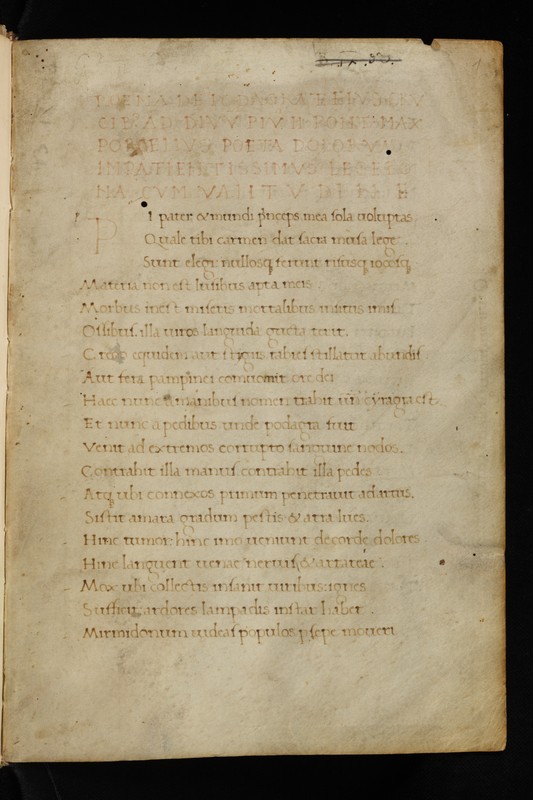 POEMA DE PODAGRA ET EIVS CRV
AD DIVVM PIVM II PONT MAX
PORCELLIVS POETA DOLORVM
IMPATIENTISSIMVS
CVM VALITVDINE
Pi pater & mundi p̄nceps mea sola uoluptas
Quale tibi carmen dat sacra musa lege.
Sunt elegi: nullosq; ferunt risusq; iocosq;
Materia non est lusibus apta meis.
Morbus inest miseris mortalibus insitus imis
Ossibus. illa uiros languida gucta tenet.
equidem aut stigiis rabies stillatur abundis
Aut fera pampinei comuomit ore dei
Haec nunc a manibus nomen trahit un̄ cyragra est.
Et nunc a pedibus unde podagra fuit
Venit ad extremos corrupto sanguine nodos.
Contrahit illa manus contrahit illa pedes
Atq; ubi connexos primum penetrauit ad artus.
Sistit amara gradum pestis & atra lues.
Hinc tumor: hinc imo ueniunt de corde dolores
Hinc languent uenae nerui &
Mox ubi collectis insanit uiribus: ignes
Sufficit: ardores lampadis instar habet.
Mirmidonum uideas populos p sepe moueri